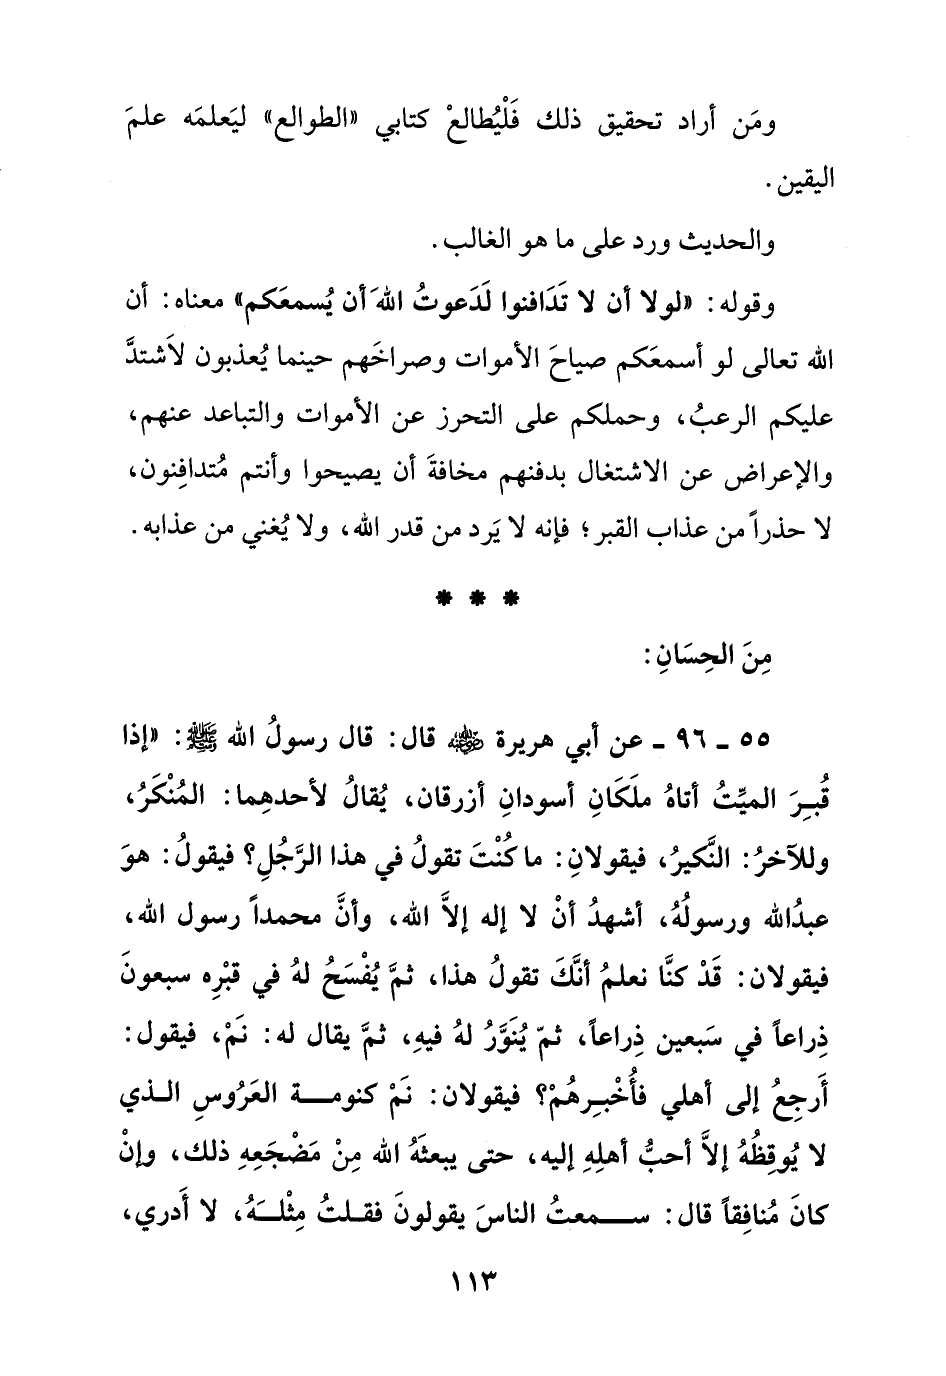 ومَن أراد تحقيق ذلك فَلْيُطالعْ كتابي «الطوالع» ليَعلمَه علمَ
اليقين .
والحديث ورد على ما هو الغالب .
وقوله : «لولا أن لا تَدَافنوا لَدَعوتُ اللهَ أن يُسمعَكم» معناه : أن
الله تعالى لو أسمعَكم صياحَ الأموات وصراخَهم حينما يُعذبون لاَشتدَّ
عليكم الرعبُ، وحملكم على التحرز عن الأموات والتباعد عنهم،
والإعراض عن الاشتغال بدفنهم مخافةَ أن يصيحوا وأنتم مُتدافِنون،
لا حذراً من عذاب القبر ؛ فإنه لا يَرد من قدر الله، ولا يُغني من عذابه .
* * *
مِنَ الحِسَانِ :
٥٥ ـ ٩٦ ـ عن أبي هريرة رضي الله عنه قال : قال رسولُ الله ﷺ : «إذا
قُبِرَ الميِّتُ أتاهُ ملَكَانِ أسودانِ أزرقان، يُقالُ لأحدهِما : المُنْكَرُ،
وللآخرُ : النَّكيرُ، فيقولانِ : ما كُنْتَ تقولُ في هذا الرَّجُلِ؟ فيقولُ : هوَ
عبدُالله ورسولُهُ، أشهدُ أنْ لا إله إلاَّ الله، وأنَّ محمداً رسول الله،
فيقولان : قَدْ كنَّا نعلمُ أنَّكَ تقولُ هذا، ثمَّ يُفْسَحُ لهُ في قبْرِه سبعونَ
ذِراعاً في سَبعين ذِراعاً، ثمّ يُنَوَّرُ لهُ فيهِ، ثمَّ يقال له : نَمْ، فيقول :
أَرجِعُ إلى أهلي فأُخْبِرهُمْ؟ فيقولان : نَمْ كنومـــة العَرُوسِ الـذي
لا يُوقِظُهُ إلاَّ أحبُّ أهلِهِ إليه، حتى يبعثَهُ الله مِنْ مَضْجَعِهِ ذلك، وإنْ
كانَ مُنافِقاً قال : ســـمعتُ الناسَ يقولونَ فقـلتُ مِثْلـهُ، لا أَدري،
١١٣